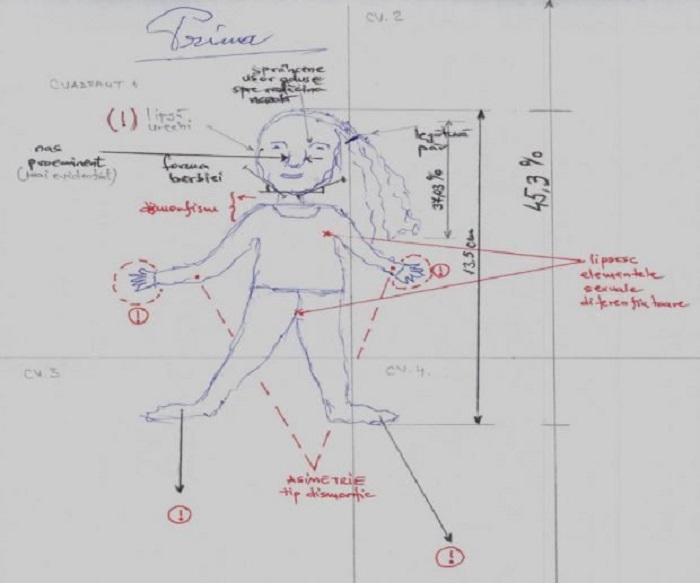 Prima
CV. 2
CUADRANT 1
sprâncene
ușor aduse
spre rădăcina
(!) lipsă
urechi
nas
proeminent
(mai evidențiat)
forma
bărbiei
dismorfism
37,03 %
13.5 cm
45,3 %
lipsesc
elementele
sexuale
diferențiatoare
!
!
CV. 3
CV. 4.
ASIMETRIE
tip dismorfic
!
!